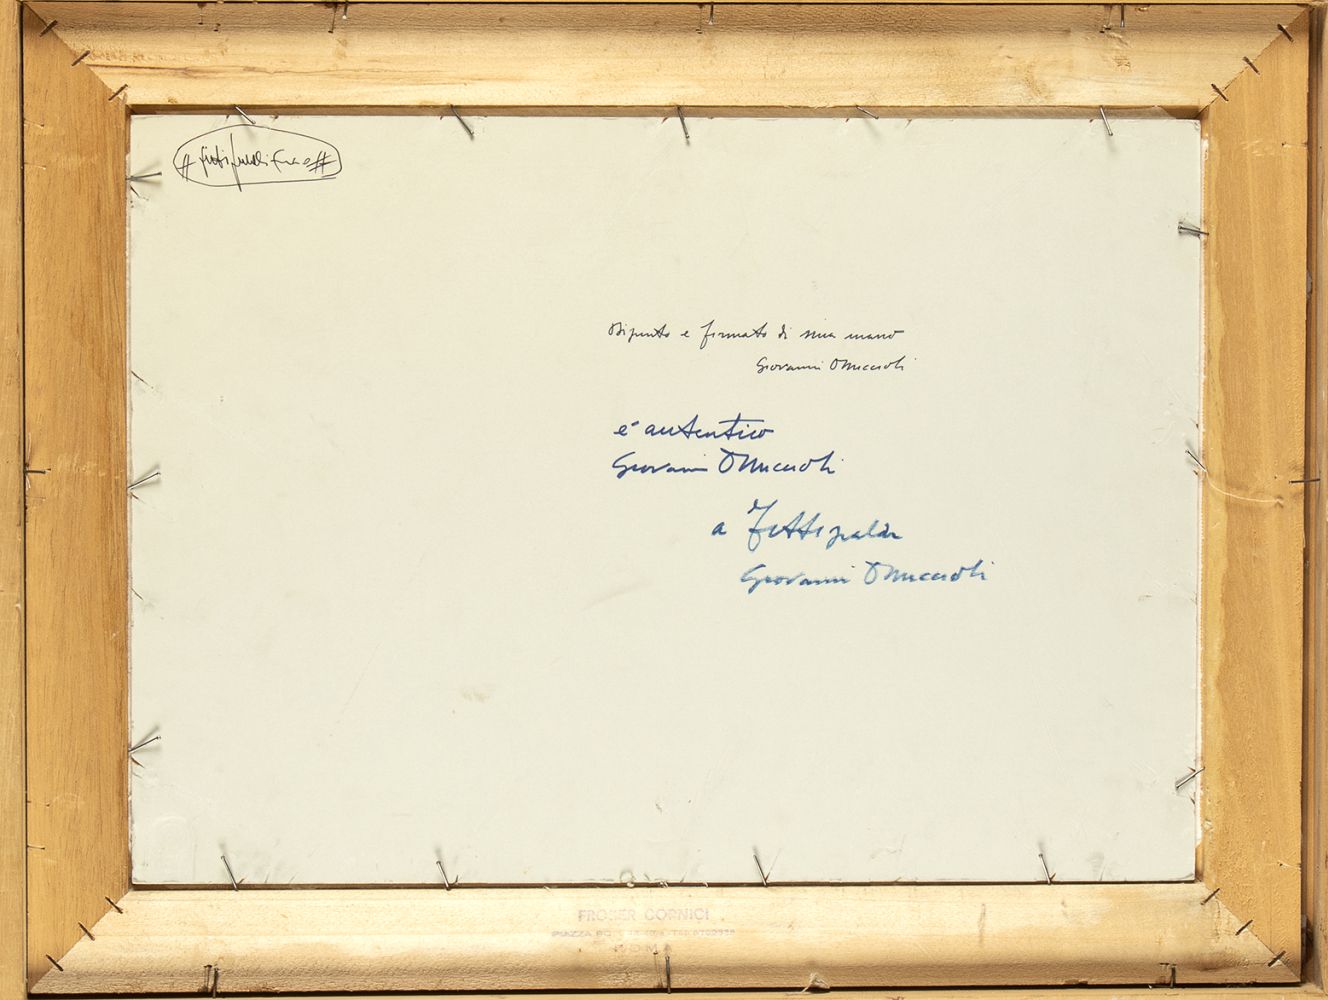 Dipinto e firmato di mia mano
Giovanni Omiccioli
e' autentico
Giovanni Omiccioli
a Fittipaldi
Giovanni Omiccioli
CORNICI
PIAZZA
ROMA